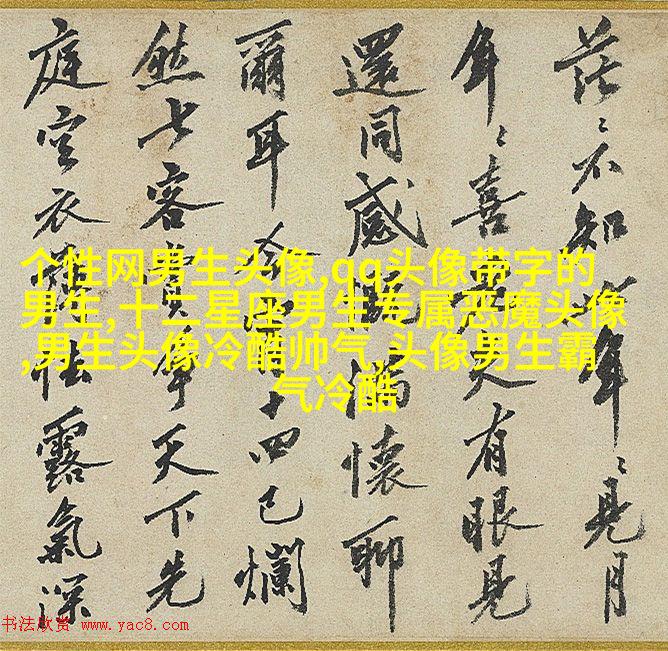 茫〻不知年〻見月
年〻喜天有眼見
還同感慨滿懷聊
爾耳十四已爛
然七客賞爭天下先
庭空衣怯露氣深
个性网男生头像,qq头像带字的
男生,十二星座男生专属恶魔头像
,男生头像冷酷帅气,头像男生霸
气冷酷
书法欣赏 www.yac8.com